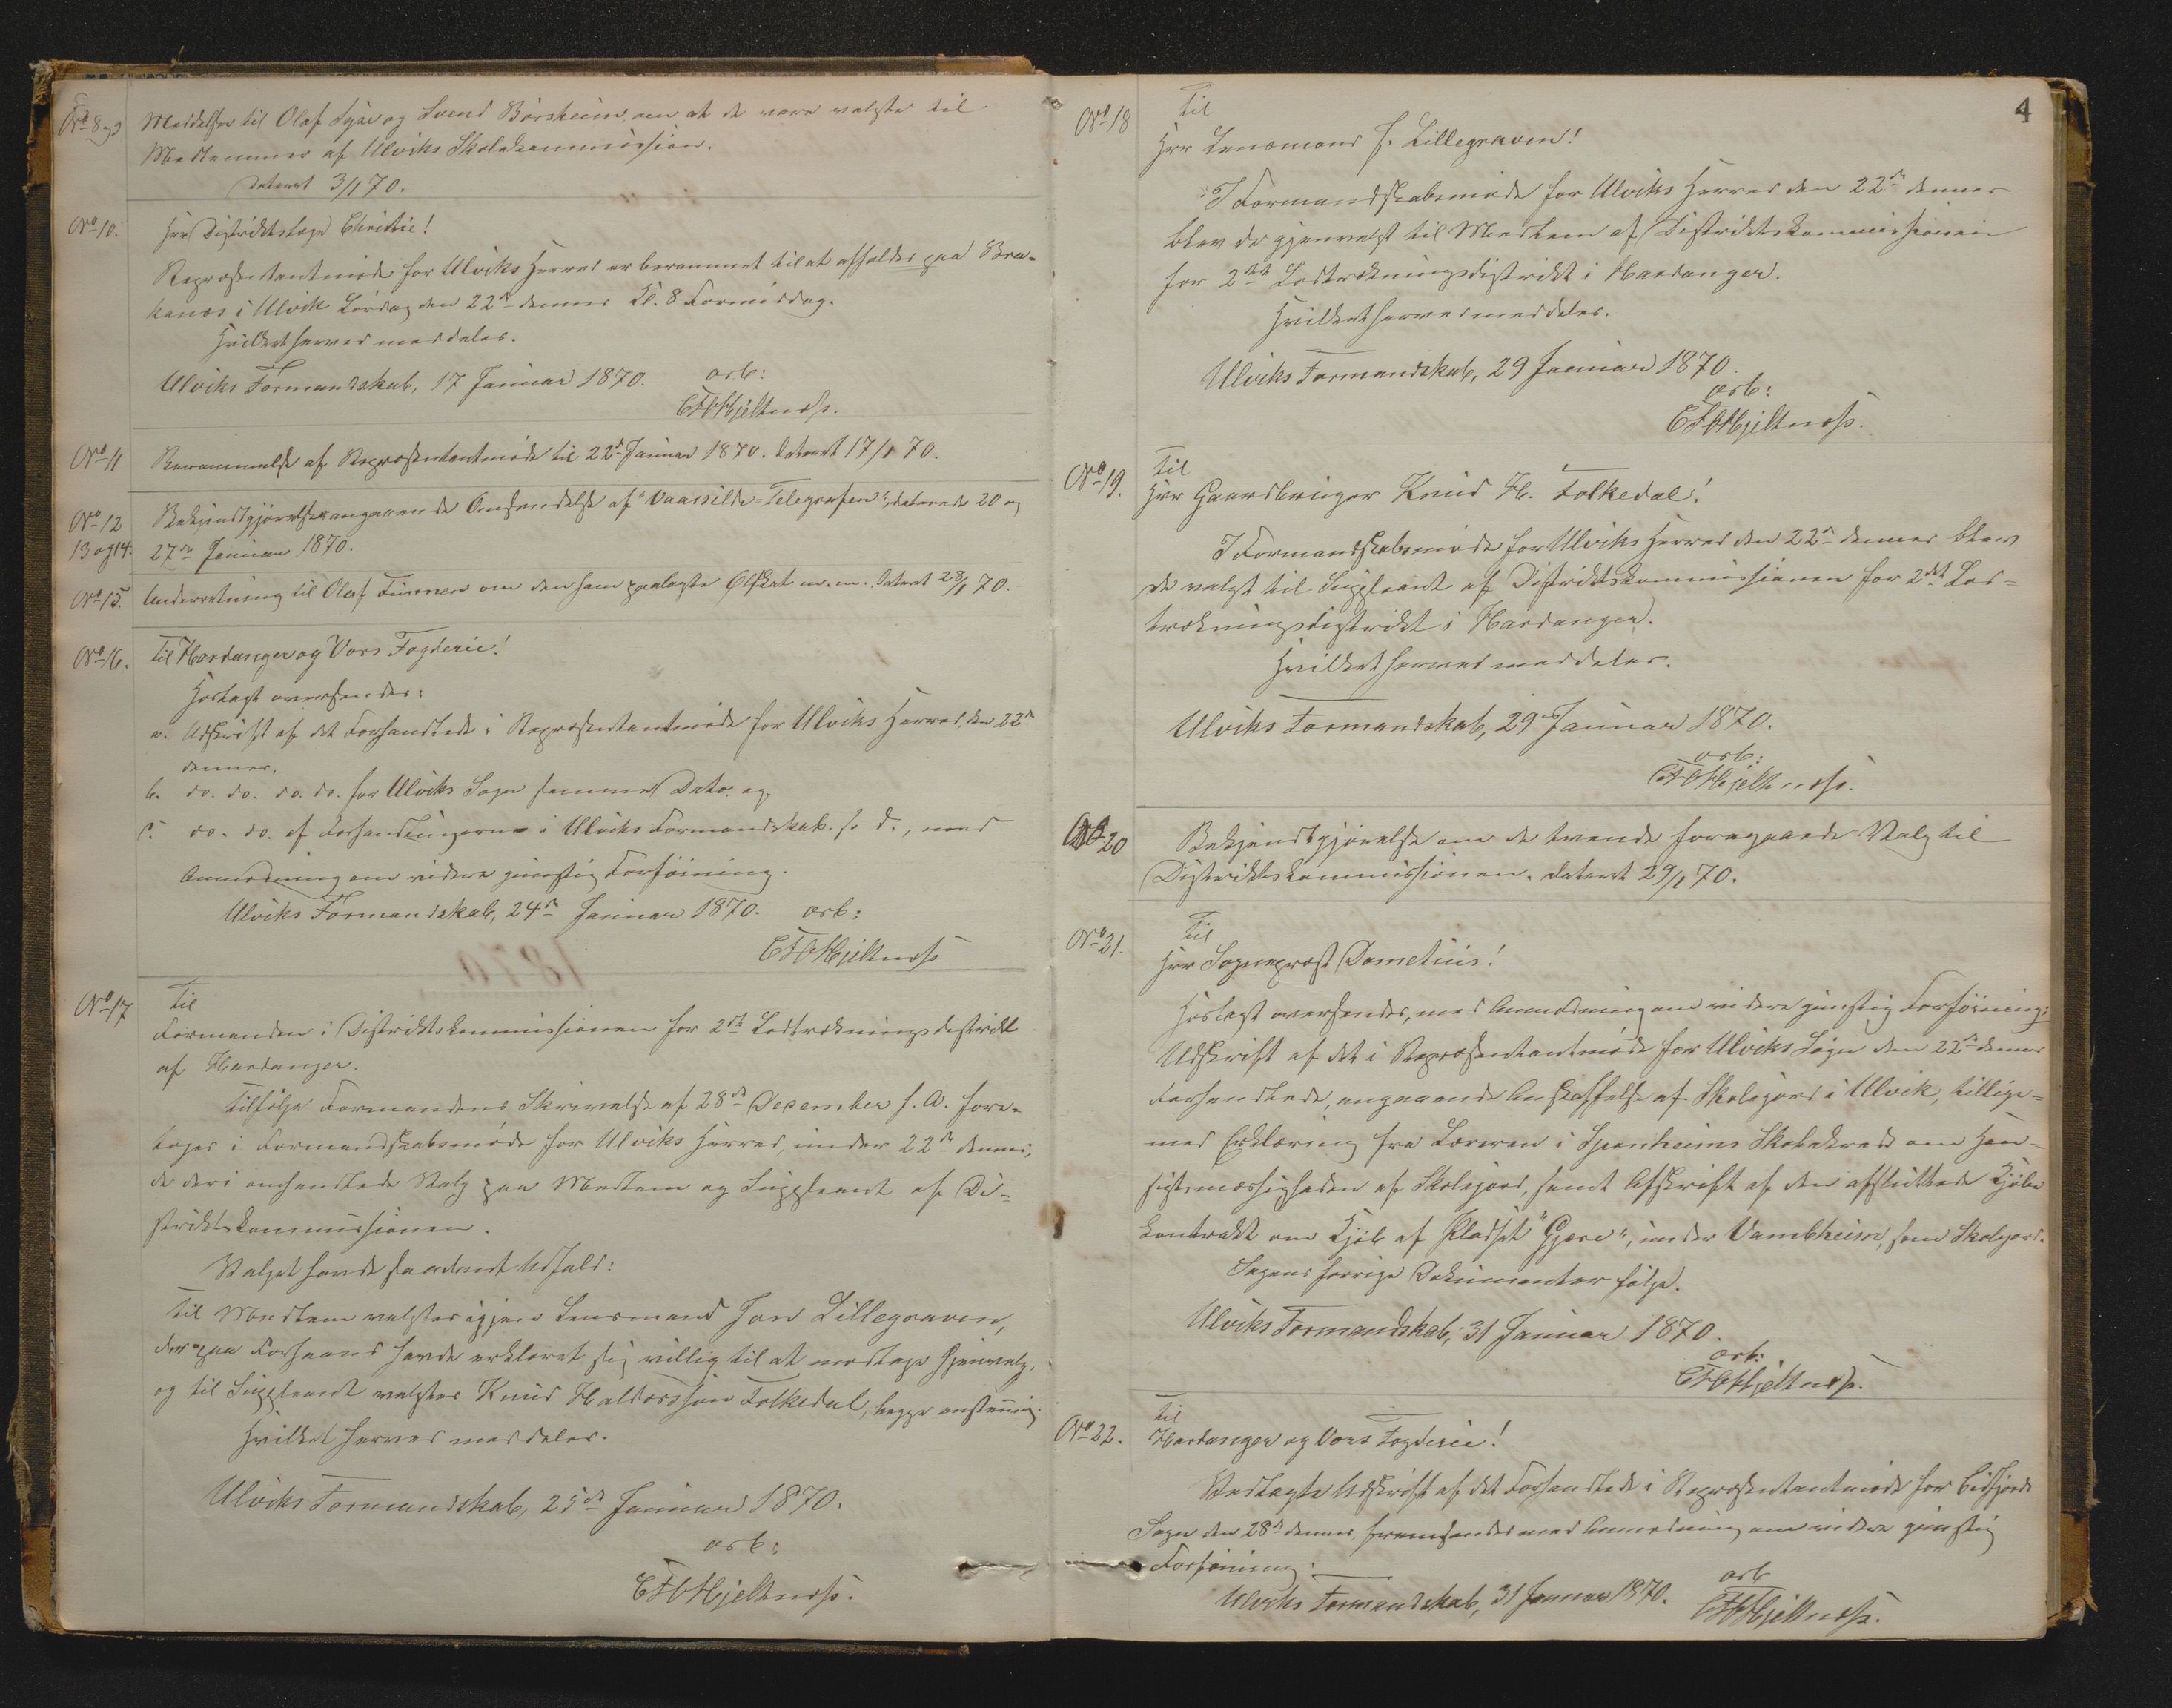 No 8 og 9 Meddelelse til Olaf Lyse og Svend Börsheim, om at de vare valgte til
Medlemmer af Ulviks Skolekommission.
Dateret 3/1 70.
No 10. Herr Distriktslæge Christie!
Repræsentantmöde for Ulviks Herred er berammet til at afholdes paa Bra-
kanæs i Ulvik Lördag den 22de dennes Kl. 8 Formiddag.
Hvilket herved meddeles.
Ulviks Formandskab, 17 Januar 1870. ærb:
Hjeltnæss.
No 11 Berammelse af Repræsentantmöde til 22de Januar 1870. Dateret 17/1 70.
No 12 Bekjendtgjörelser angaaende Omsendelse af "Vaarsilde-Telegrafen", daterede 20 og
13 og 14. 27de Januar 1870.
No 15. Underretning til Olaf Finnen om den ham paalagte Ölskat m.m. Dateret 28/1 70.
No 16. Til Hardanger og Vors Fogderie!
Hoslagt oversendes:
a. Udskrift af det Forhandlede i Repræsentantmöde for Ulviks Herred, den 22de
dennes,
b. do. do. do. do. for Ulviks Sogn samme Dato. og
c. do. do. af Forhandlingerne i Ulviks Formandskab s. d., med
Anmodning om videre gunstig Forföining.
Ulviks Formandskab, 24de Januar 1870. ærb:
Hjeltnæss
No 17 Til
Formanden i Distriktskommissionen for 2det Lodtrækningsdistrikt
af Hardanger.
Tilfölge Formandens Skrivelse af 28de December f. A. fore-
toges i Formandskabsmöde for Ulviks Herred, under 22de dennes,
de deri omhandlede Valg paa Medlem og Suppleant af Di-
striktskommissionen.
Valget havde saadant Udfald:
Til Medlem valgtes igjen Lensmand Jon Lillegraven,
der paa Forhaand havde erklæret sig villig til at modtage Gjenvalg,
og til Suppleant valgtes Knud Haldorssön Folkedal, begge enstemmig.
Hvilket herved meddeles.
Ulviks Formandskab, 25de Januar 1870.
ærb:
Hjeltnæss.
4
No 18 Til
Herr Lensmand J. Lillegraven!
I Formandskabsmöde for Ulviks Herred den 22de dennes
blev De gjenvalgt til Medlem af Distriktskommissionen
for 2det Lodtrækningsdistrikt i Hardanger.
Hvilket herved meddeles.
Ulviks Formandskab, 29 Januar 1870.
ærb:
Hjeltnæss.
No 19. Til
Herr Gaardbruger Knud H. Folkedal!
I Formandskabsmöde for Ulviks Herred den 22de dennes blev
De valgt til Suppleant af Distriktskommissionen for 2det Lod-
trækningsdistrikt i Hardanger.
Hvilket herved meddeles.
Ulviks Formandskab, 29 Januar 1870.
ærb:
Hjeltnæss.
No 20 Bekjendtgjörelse om de tvende foregaaende Valg til
Distriktskommissionen. Dateret 29/1 70.
No 21. Til
Herr Sogneprest Dametius!
Hoslagt oversendes, med Anmodning om videre gunstig Forföining:
Udskrift af det i Repræsentantmöde for Ulviks Sogn den 22de dennes
Forhandlede, angaaende Anskaffelse af Skolejord i Ulvik, tillige-
med Erklæring fra Læreren i Sponheims Skolekreds om Hen-
sigtsmæssigheden af Skolejord, samt Afskrift af den afsluttede Kjöbe
kontrakt om Kjöb af Pladset "Gjære", under Vambheim, som Skolejord.
Sagens forrige Dokumenter fölge.
Ulviks Formandskab, 31 Januar 1870.
ærb:
Hjeltnæss.
No 22. Til
Hardanger og Vors Fogderie!
Vedlagte Udskrift af det Forhandlede i Repræsentantmöde for Eidfjords
Sogn den 28de dennes, fremsendes med Anmodning om videre gunstig
Forföining.
Ulviks Formandskab, 31 Januar 1870. ærb
Hjeltnæss.